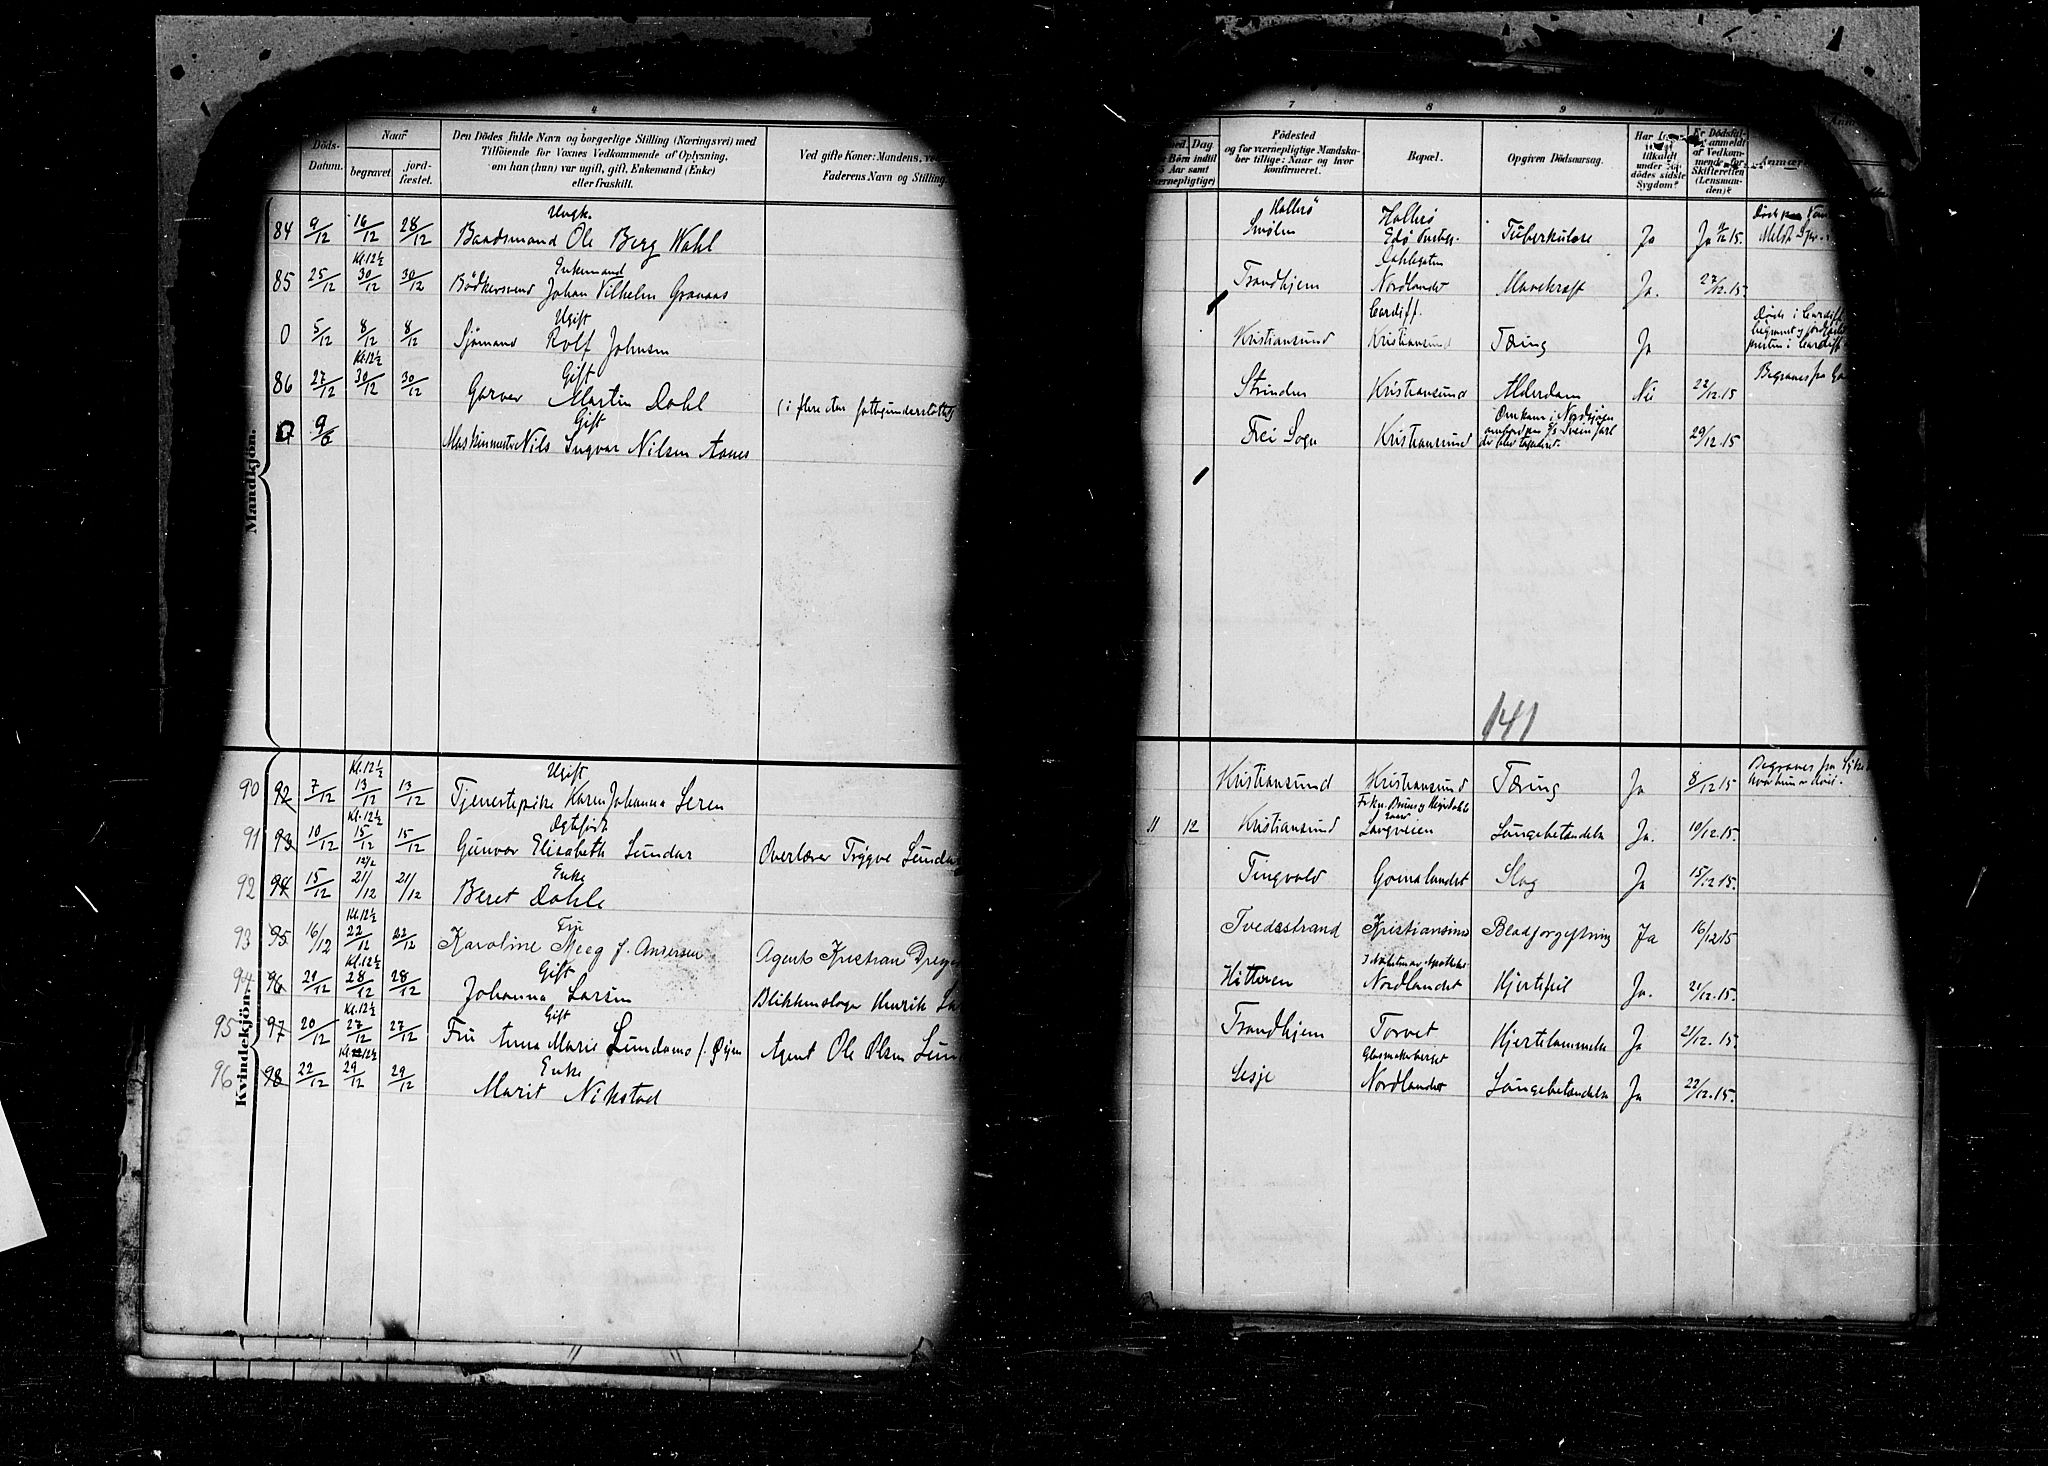 4
Döds-
Datum.
Naar
begravet
jord-
fæstet.
Den Dödes fulde Navn og borgerlige Stilling (Næringsvei) med
Tilföiende for Voxnes Vedkommende af Oplysning,
om han (hun) var ugift, gift, Enkemand (Enke)
eller fraskilt.
Ved gifte Koner: Mandens,
Faderens Navn og Stilling
Mandkjön.
Ungk.
84 9/12 16/12 28/12 Baadsmand Ole Berg Wahl
Kl. 12½ Enkemand
85 25/12 30/12 30/12 Bödkersvend Johan Vilhelm Granaas
Ugift
0 5/12 8/12 8/12 Sjömand Rolf Johnsen
Kl. 12½ Gift
86 27/12 30/12 30/12 Garver Martin Dahl
Gift
0 9/6 Maskinmester Nils Ingvar Nilsen Aanes
Kvindekjön.
Kl. 12½ Ugift
90 92 7/12 13/12 13/12 Tjenestepike Karen Johanna Seren
Kl. 12½ Ægtefödt
91 93 10/12 15/12 15/12 Gunvor Elisabeth Sundar Overlærer Trygve
12½ Enke
92 94 15/12 21/12 21/12 Beret Dahle
Kl. 12½ Fru
93 95 16/12 22/12 22/12 Karoline f. Andersen Agent Kristian
Kl. 12½ Gift
94 96 21/12 28/12 28/12 Johanna Larsen Blikkenslager Henrik
Kl. 12½ Gift
95 97 20/12 27/12 27/12 Fru Anna Marie Sundamo f. Öyen Agent Ole Olsen
Kl. 12½ Enke
96 98 22/12 29/12 29/12 Marit Nikstad
7 8 9 10
Dag.
Börn indtil
Aar samt
værnepligtige)
Födested
og for værnepligtige Mandska-
ber tillige: Naar og hvor
konfirmeret.
Bopæl.
Opgiven Dödsaarsag.
Har
tilkaldt
under
dödes sidste
Sygdom?
Er Dödsfal-
anmeldt
af Vedkom-
mende for
Skifteretten
(Lensman-
den)?
Hallerö Hallerö
Smölen Edö Tuberkulose Ja Ja 9/12 15.
Dahlegaten
Trondhjem Nordlandet Mavekræft Ja. 27/12.15.
Cardiff. Döde i Cardiff
Kristiansund Kristiansund Tæring Ja
presten i Cardiff
Strinden Kristiansund Alderdom Nei 22/12.15 Begraves fra
Omkom i Nordsjöen
Frei Sogn Kristiansund ombord paa s/s Svein Jarl 29/12.15
der blev torpedert.
141
Kristiansund Kristiansund Tæring Ja 8/12 15 Begraves fra
11 12 Kristiansund Langveien Lungebetændelse Ja. 10/12.15.
Tingvold Gomalandet Slag Ja 15/12 15.
Tvedestrand Kristiansund Blodforgiftning Ja 16/12 15
Hitteren Nordlandet Hjertefeil Ja. 21/12.15.
Trondhjem Torvet Hjertelammelse Ja 21/12.15.
Glasmakerberget
Lesje Nordlandet Lungebetændelse Ja 22/12.15.